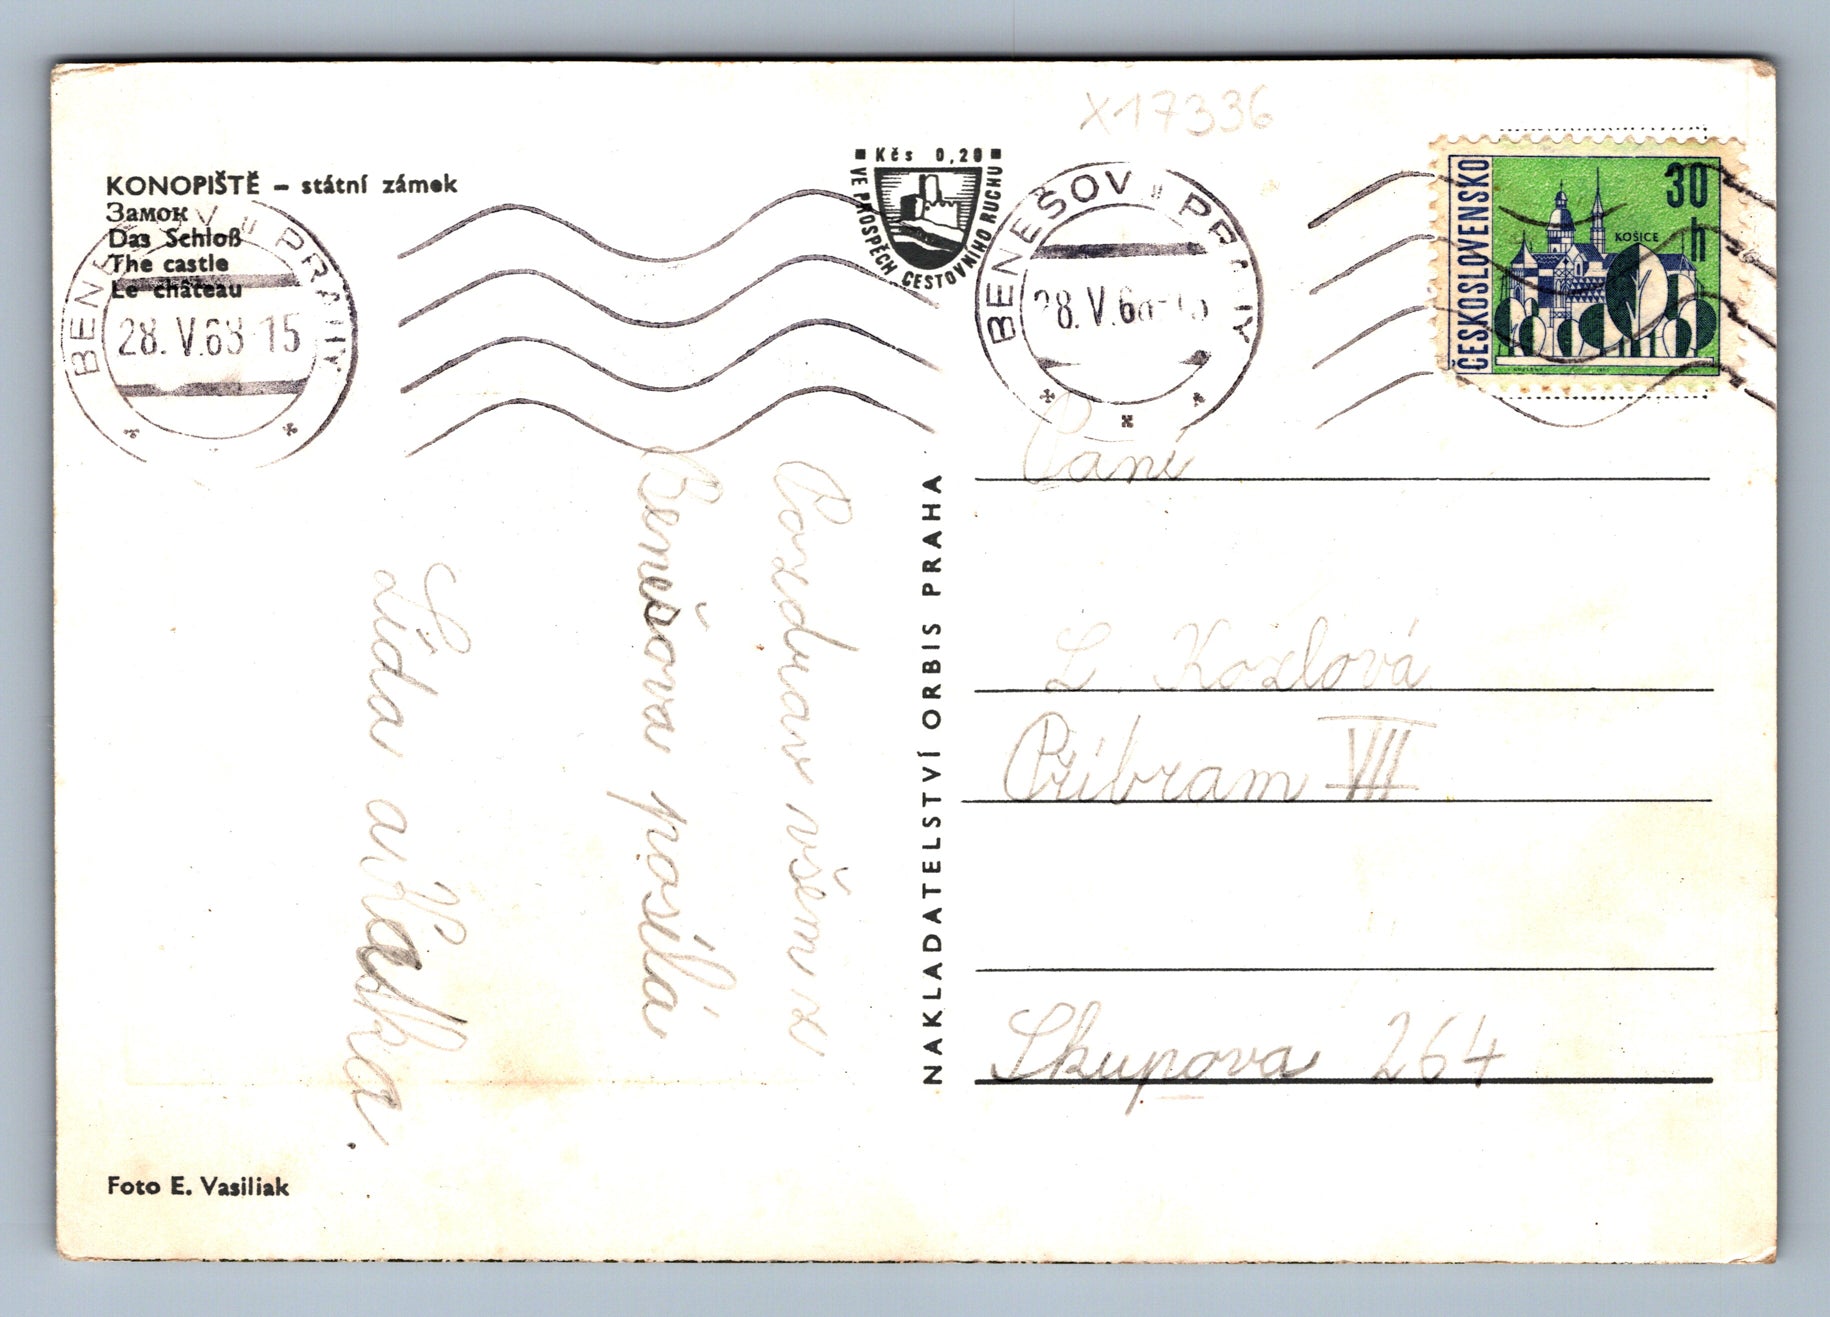 X17336
KONOPIŠTĚ – státní zámek
Замок
Das Schloß
The castle
Le château
BENEŠOV U PRAHY
28.V.68-15
Kčs 0,20
VE PROSPĚCH CESTOVNÍHO RUCHU
BENEŠOV U PRAHY
28.V.68-15
ČESKOSLOVENSKO
30 h
KOŠICE
Pozdrav všem z
Benešova posílá
Lída a Vlastka.
NAKLADATELSTVÍ ORBIS PRAHA
Paní
L. Kozlová
Příbram VII
Skupova 264
Foto E. Vasiliak